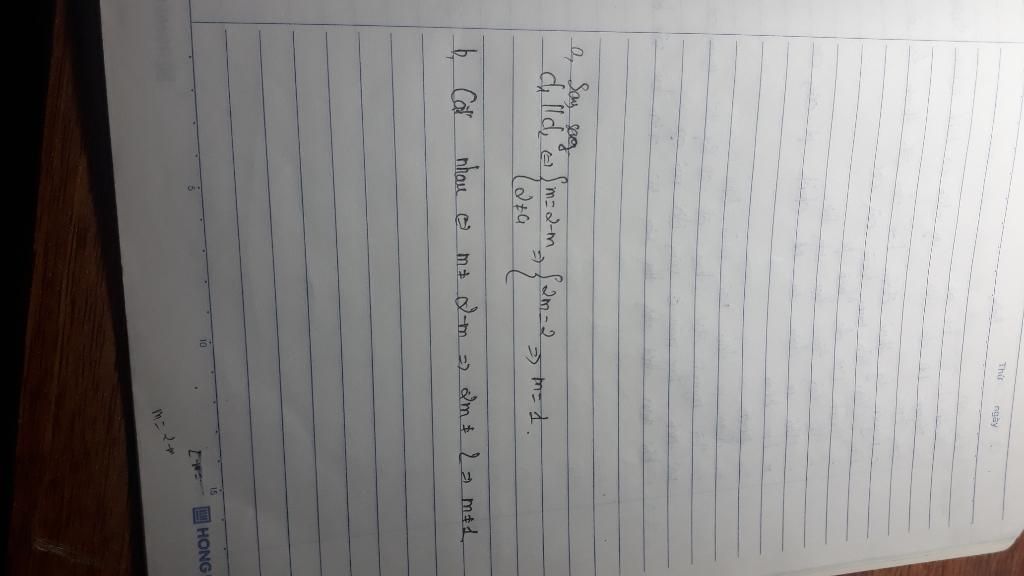 Thứ ngày
a, Song song
d₁ // d₂ ⇔ { m = 2-m ⇒ { 2m = 2 ⇒ m = 1.
{ 2 ≠ 4 {
b, Cắt nhau ⇔ m ≠ 2-m ⇒ 2m ≠ 2 ⇒ m ≠ 1
5 10 15
HONG
m = 2-